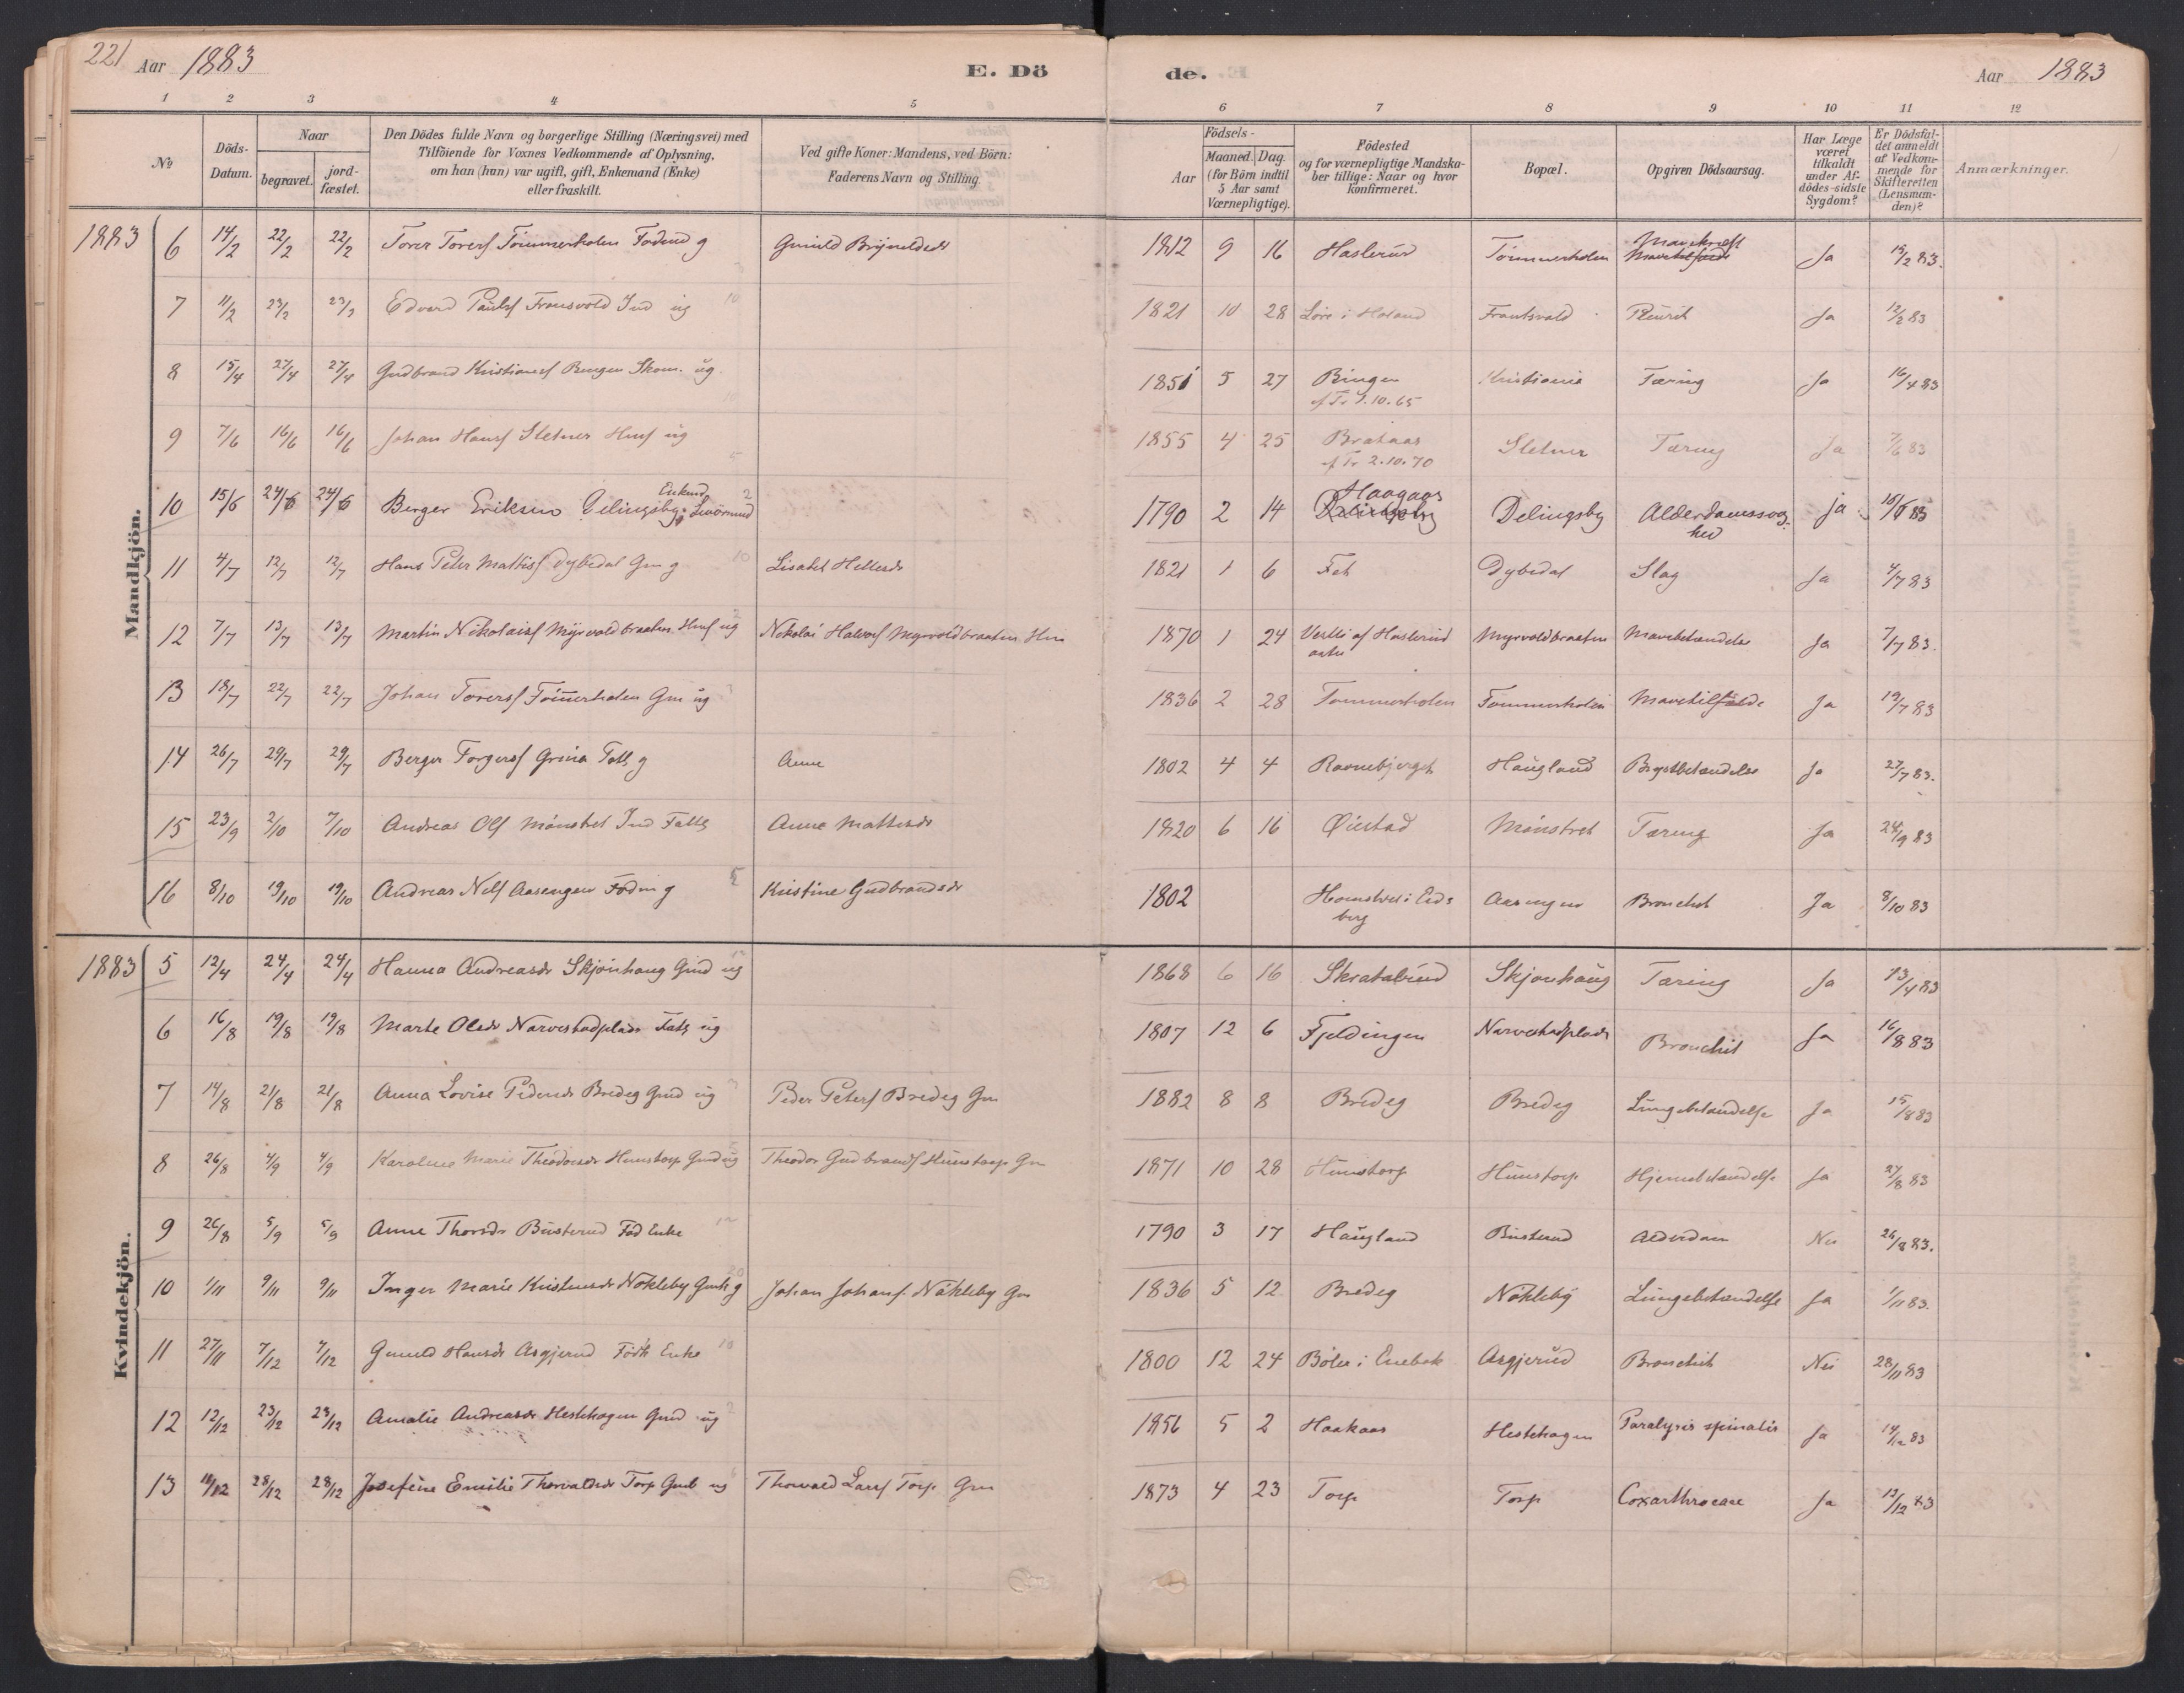 221 Aar 1883 E. Dö de. Aar 1883
1 2 3 4 5 6 7 8 9 10 11 12
№ Döds-Datum. Naar begravet. jord-fæstet. Den Dödes fulde Navn og borgerlige Stilling (Næringsvei) med Tilföiende for Voxnes Vedkommende af Oplysning, om han (hun) var ugift, gift, Enkemand (Enke) eller fraskilt. Ved gifte Koner: Mandens, ved Börn: Faderens Navn og Stilling. Födsels- Aar Maaned. Dag. (for Börn indtil 5 Aar samt Værnepligtige). Födested og for værnepligtige Mandskaber tillige: Naar og hvor konfirmeret. Bopæl. Opgiven Dödsaarsag. Har Læge været tilkaldt under Afdödes sidste Sygdom? Er Dödsfaldet anmeldt af Vedkommende for Skifteretten (Lensmanden)? Anmærkninger.
Mandkjön.
1883 6 14/2 22/2 22/2 Torer Torers Tömmerholen g Gunild Brynildsdr 1812 9 16 Haslerud Tömmerholen Mavekræft Ja 15/2 83.
7 11/2 23/2 23/2 Edvard Pauls Fransvold Ind ug 1821 10 28 Löre i Höland Frantsvold Pleurit Ja 12/2 83
8 15/4 27/4 27/4 Gudbrand Kristians Bingen Skom. ug. 1851 5 27 Bingen af Tr 1.10.65 Kristiania Tæring Ja 16/4 83
9 7/6 16/6 16/6 Johan Hans Sletner Hms ug 1855 4 25 Brataas af Tr 2.10.70 Sletner Tæring Ja 7/6 83
10 15/6 24/6 24/6 Berger Eriksen Delingsby Enkmd 1790 2 14 Haagaas Delingsby Delingsby Alderdomssvaghed ja 16/6 83
11 4/7 12/7 12/7 Hans Peter Mattis Dybedal Gm g Lisabet Hellesdr 1821 1 6 Fet Dybedal Slag Ja 4/7 83
12 7/7 13/7 13/7 Martin Nikolais Myrvoldbraaten Hms ug Nikolai Halvors Myrvoldbraaten Hm 1870 1 24 Vestli af Haslerud Myrvoldbraaten Mavebetændelse Ja 7/7 83.
13 18/7 22/7 22/7 Johan Torers Tömmerholen Gm ug 1836 2 28 Tommerholen Tommerholen Mavetilfælde Ja 19/7 83
14 26/7 29/7 29/7 Berger Torgers Grina Fatt. g Anne 1802 4 4 Ravnebjerget Haugland Brystbetændelse Ja 27/7 83.
15 23/9 2/10 7/10 Andreas Ols Mönstret Ind Fattg Anne Mattisdr 1820 6 16 Øiestad Mönstret Tæring Ja 24/9 83
16 8/10 19/10 19/10 Andreas Nils Aasengen Födm g Kristine Gudbrandsdr 1802 i Eidsberg Aasengen Bronchit Ja 8/10 83
Kvindekjön.
1883 5 12/4 24/4 24/4 Hanna Andreasdr Skjönhaug Gmd ug 1868 6 16 Skratabund Skjonhaug Tæring Ja 13/4 83
6 16/8 19/8 19/8 Marte Olsdr Narvestadplads Fatt. ug 1807 12 6 Fjeldingen Narvestadplads Bronchit Ja 16/8 83
7 14/8 21/8 21/8 Anna Lovise Pedersdr Bredeg Gmd ug Peder Peters Bredeg Gm 1882 8 8 Bredeg Bredeg Lungebetændelse Ja 15/8 83
8 26/8 4/9 4/9 Karoline Marie Theodorsdr Hunstorp Gmd ug Theodor Gudbrands Hunstorp Gm 1871 10 28 Hunstorp Hunstorp Hjernebetændelse Ja 27/8 83
9 26/8 5/9 5/9 Anne Thorsdr Busterud Föd Enke 1790 3 17 Haugland Busterud Alderdom Nei 26/8 83.
10 1/11 9/11 9/11 Inger Marie Kristensdr Nökleby Gmk g Johan Johans Nökleby Gm 1836 5 12 Bredeg Nökleby Lungebetændelse Ja 1/11 83.
11 27/11 7/12 7/12 Gunild Hansdr Asgjerud Födk Enke 1800 12 24 Böler i Enebak Asgjerud Bronchit Nei 28/11 83
12 12/12 23/12 23/12 Amalie Andreasdr Hestehagen Gmd ug 1856 5 2 Haakaas Hestehagen Paralysis spinalis Ja 14/12 83
13 11/12 28/12 28/12 Josefine Emilie Thorvaldsdr Torp Gmb ug Thorvald Lars Torp Gm 1873 4 23 Torp Torp Coxarthrocace Ja 12/12 83